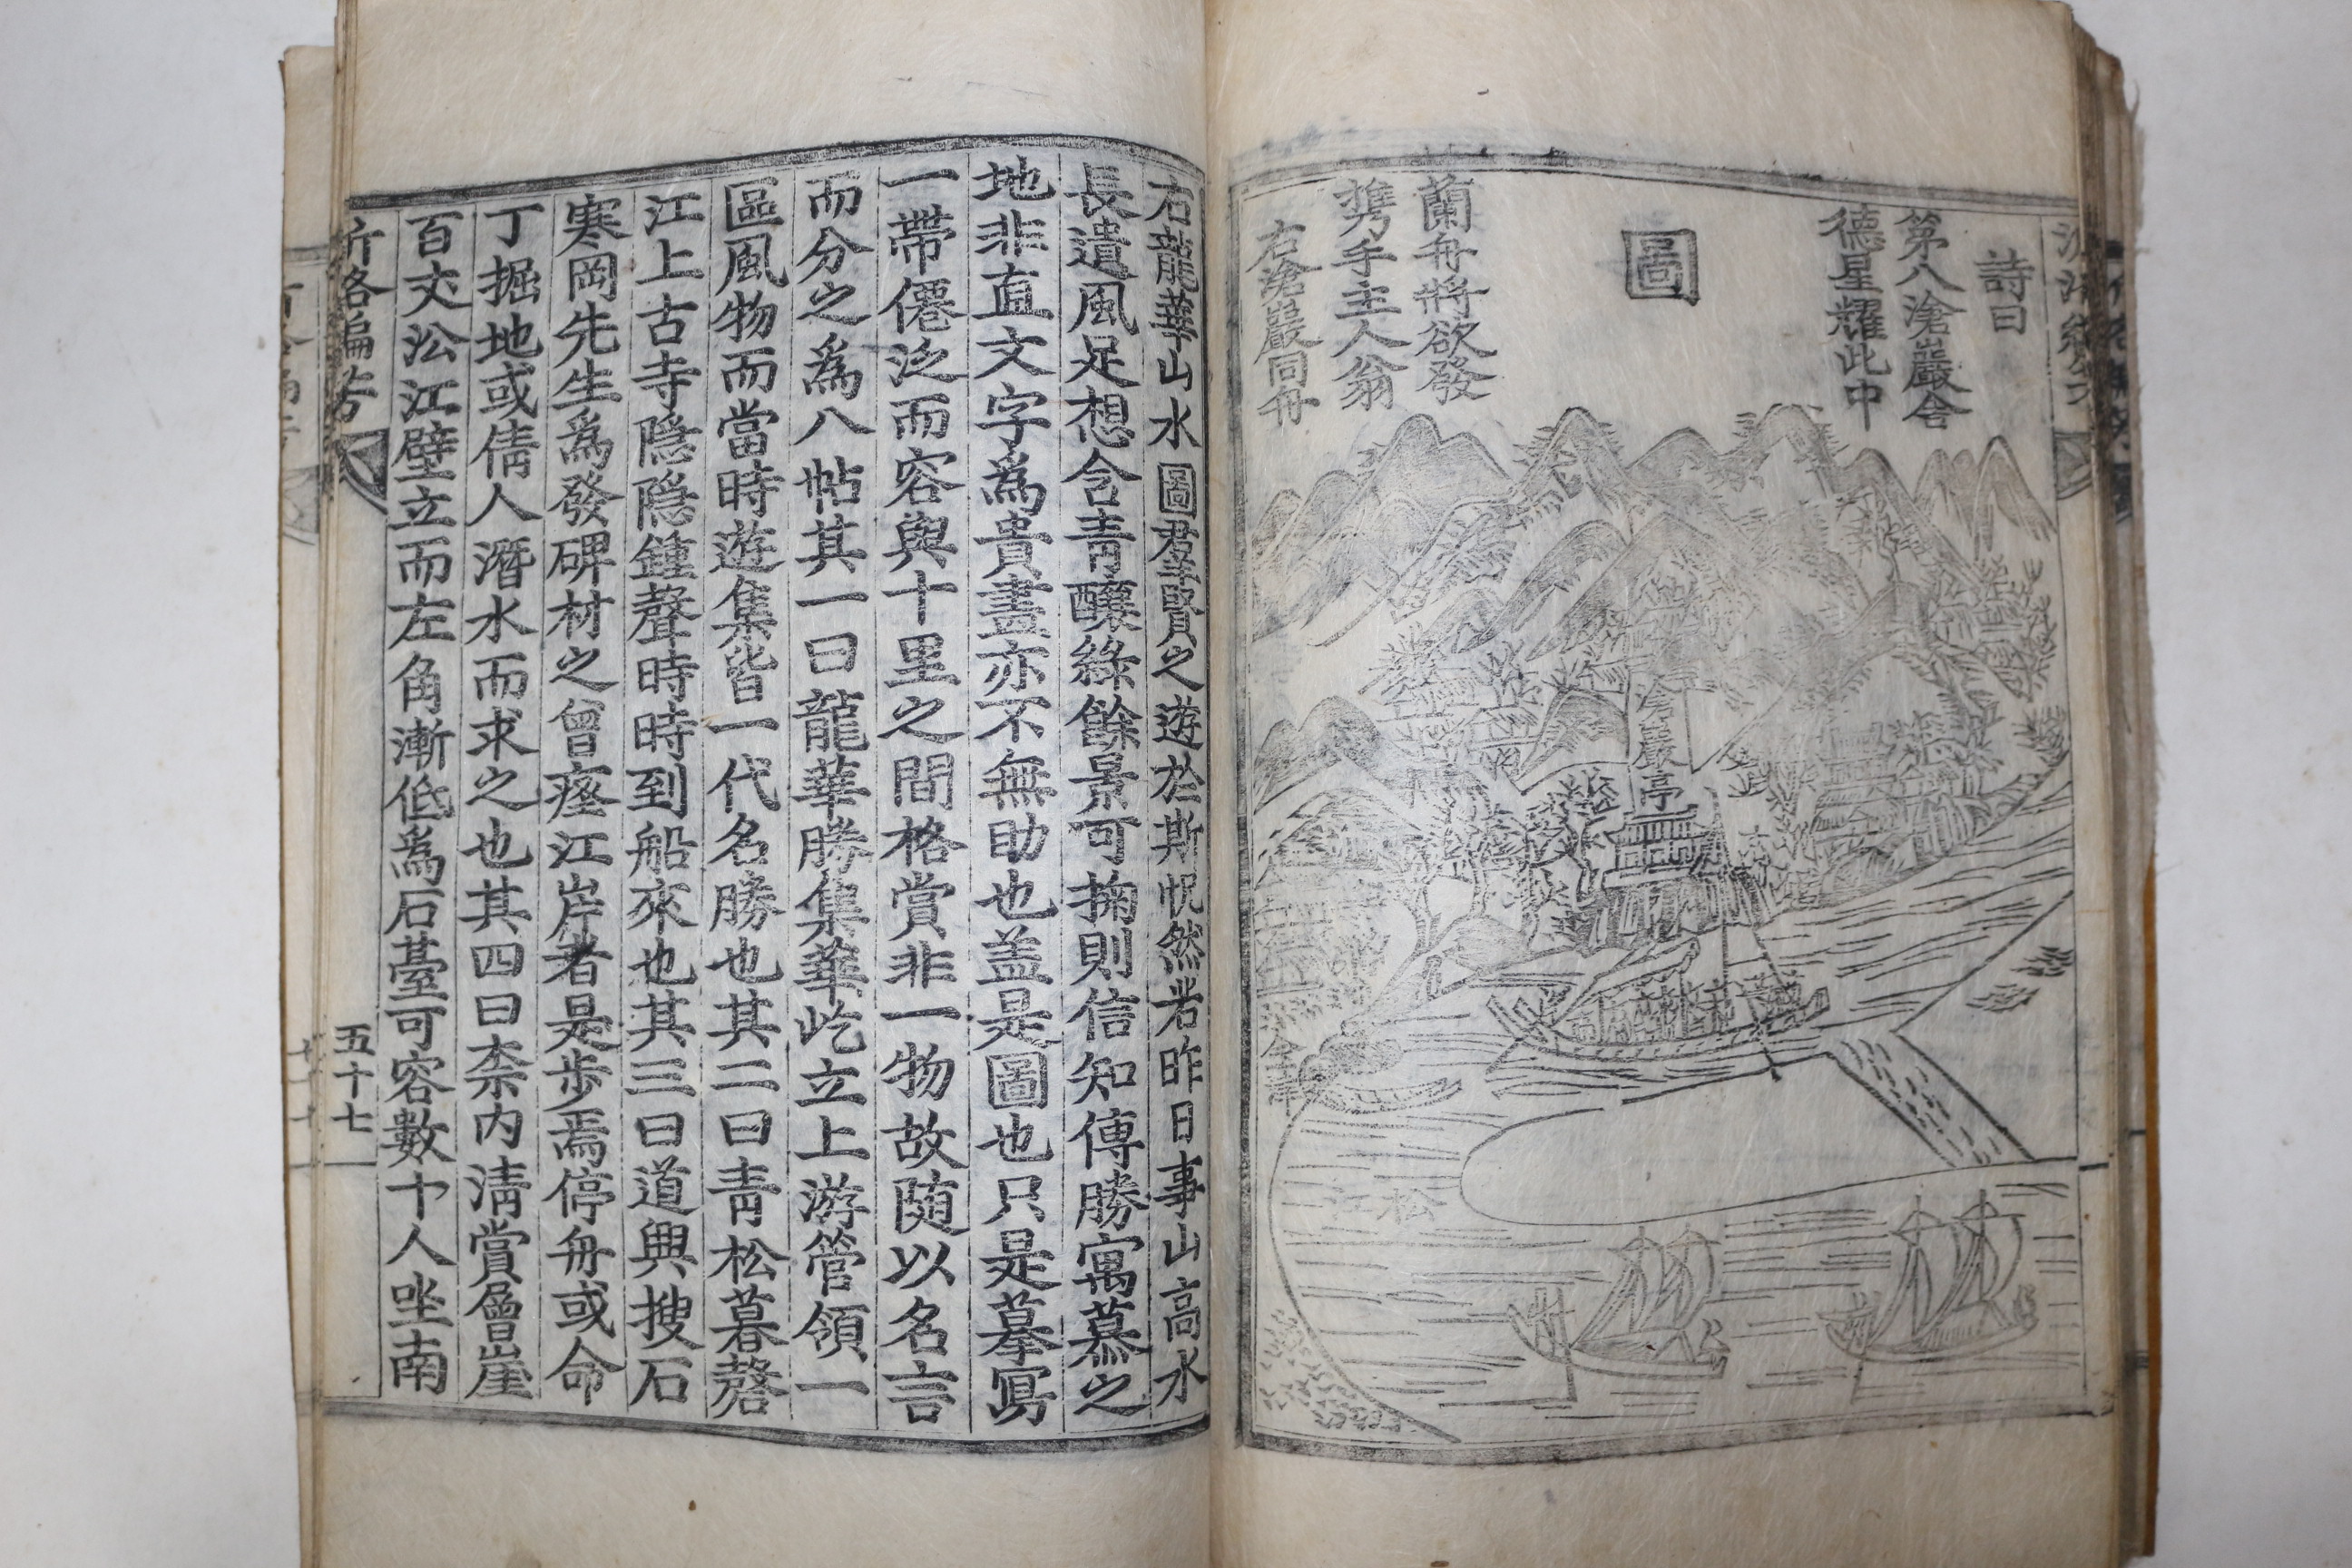 詩曰
第八滄巖舍
德星耀此中
圖
蘭舟將欲發
携手主人翁
右滄巖同舟
滄巖亭
松
江
右龍華山水圖群賢之遊於斯怳然若昨日事山高水
長遺風足想含青釀綠餘景可掬則信知傳勝寓慕之
地非直文字爲貴畫亦不無助也盖是圖也只是摹寫
一帶僊泛而容與十里之間格賞非一物故随以名言
而分之爲八帖其一曰龍華勝集華屹立上游管領一
區風物而當時遊集皆一代名勝也其二曰青松暮磬
江上古寺隱隱鍾聲時時到船來也其三曰道興搜石
寒岡先生爲發碑材之曾瘞江岸者是步焉停舟或命
丁掘地或倩人潛水而求之也其四曰柰內清賞層崖
百丈沿江壁立而左角漸低爲石臺可容數十人坐南
五十七